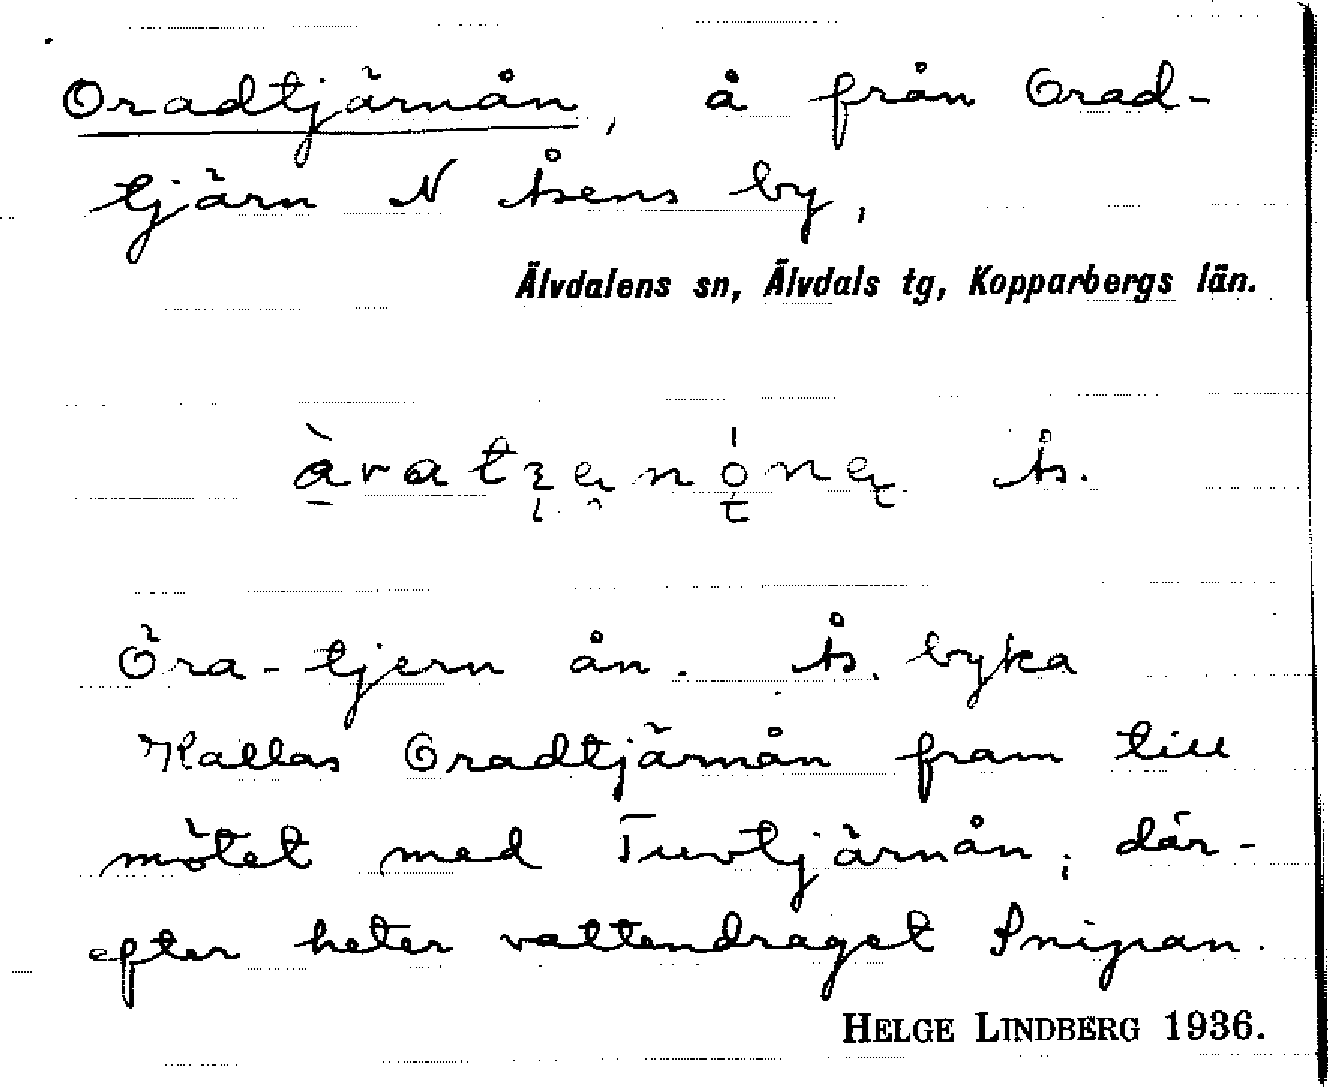 Oradtjärnån, å från Orad-
tjärn N Åsens by,
Älvdalens sn, Älvdals tg, Kopparbergs län.
Ås.
Öra-tjern ån. Ås. byka
Kallas Oradtjärnån fram till
mötet med Tuvtjärnån; där-
efter heter vattendraget Snipan.
HELGE LINDBERG 1936.